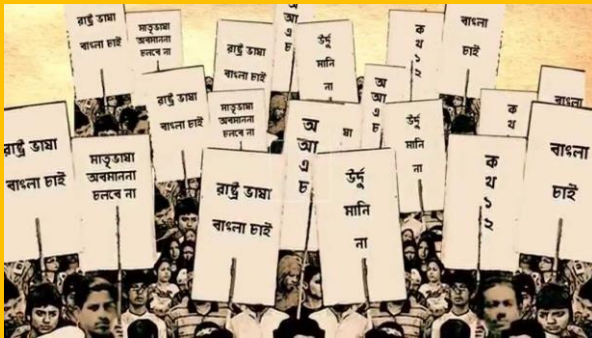 রাষ্ট্র ভাষা
বাংলা চাই
মাতৃভাষা
অবমাননা
চলবে না
রাষ্ট্র ভাষা
বাংলা চাই
আ
এ
চ
উর্দু
মানি
না
ক
খ
১
২
বাংলা
চাই
রাষ্ট্র ভাষা
বাংলা চাই
মাতৃভাষা
অবমাননা
চলবে না
অ
আ
এ
চ
উর্দু
মানি
না
ক
খ
বাংলা
রাষ্ট্র ভাষা
বাংলা চাই
মাতৃভাষা
অবমাননা
চলবে না
রাষ্ট্র ভাষা
বাংলা চাই
অ
আ
এ
চ
উর্দু
মানি
না
ক
খ
১
২
বাংলা
চাই